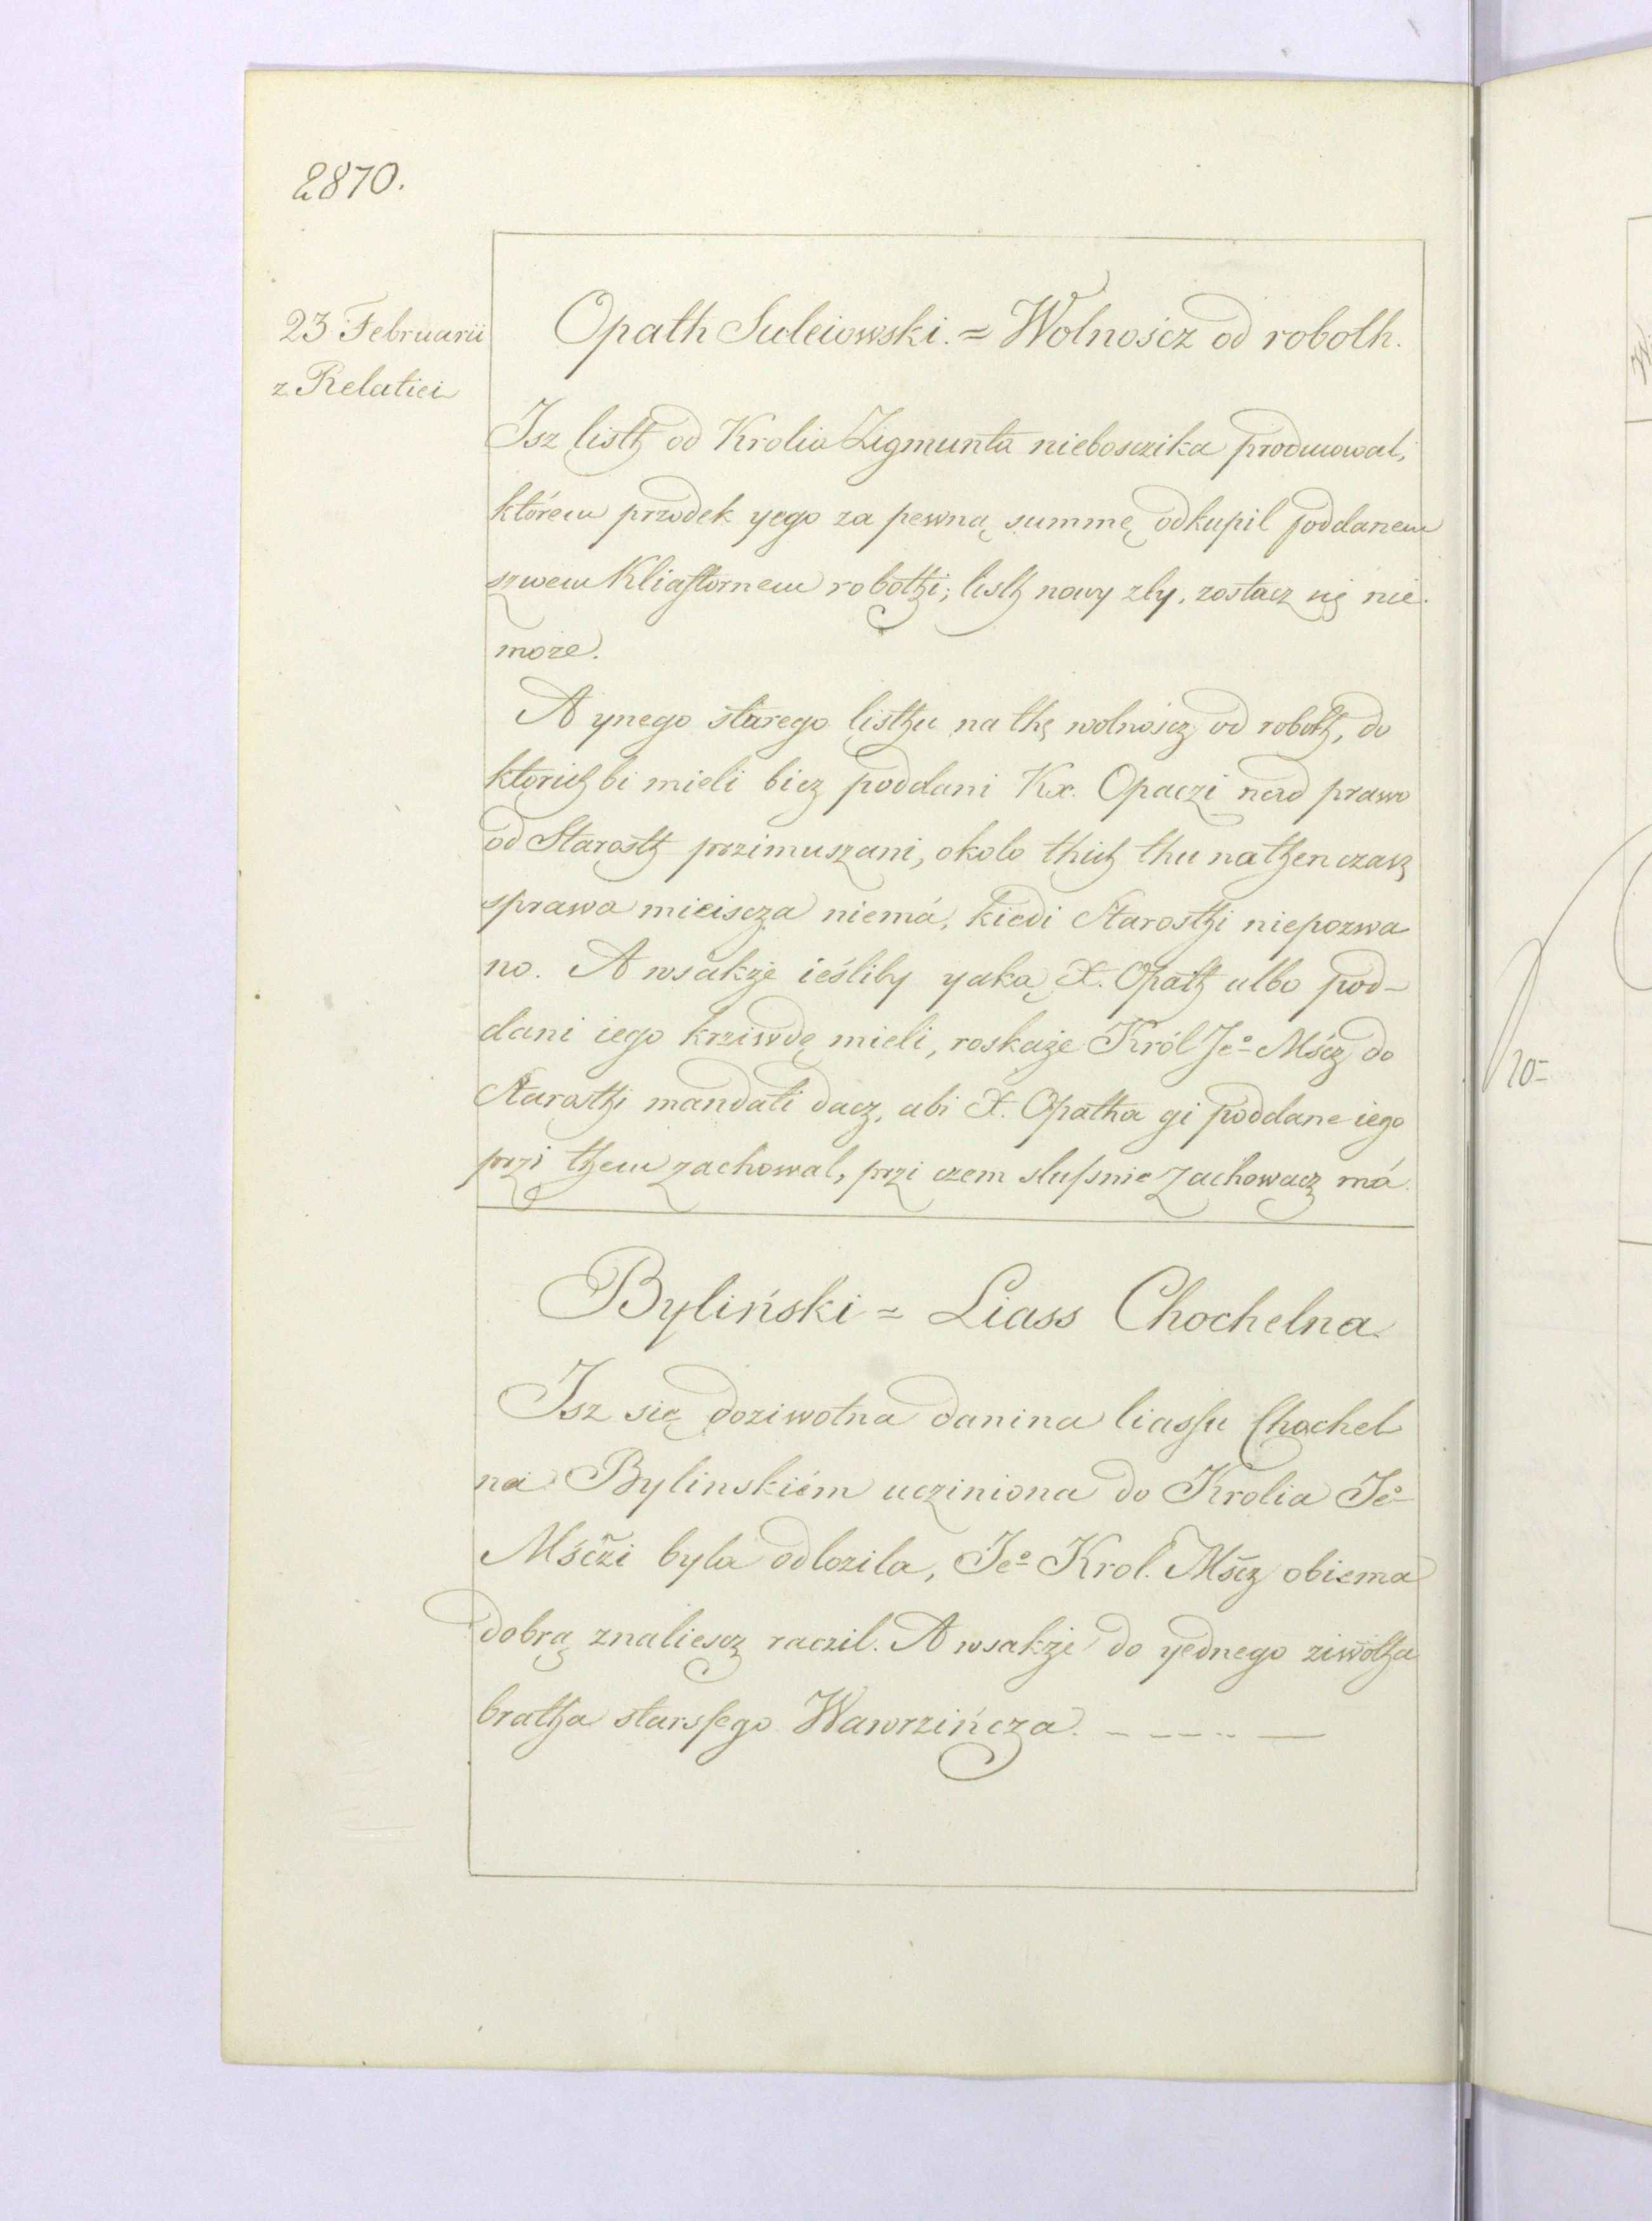 2870.
23 Februarii
z Relatiei
Opath Suleiowski. = Wolnoścz od roboth.
Isz listh od Krolia Zigmunta nieboszika producowal,
którem przodek yego za pewną summę odkupil poddanem
szwem Kliasztornem robothi; listh nowy zly, zostacz się nie
może.
A ynego starego listhu na thę wolnoścz od roboth, do
ktorich bi mieli bicz poddani Kx. Opaczi nad prawo
od Starosth przimuszani, okolo thich thu nathen czasz
sprawa mieiscza niemá, kiedi Starosthi niepozwa
no. A wsakże ieśliby yaką X. Opath albo pod-
dani iego krziwdę mieli, roskaże Król Jeo Mścz do
Starosthi mandati dacz, abi X. Opatha gi poddane iego
przi them zachowal, przi czem slusznie zachowacz má.
Byliński = Liass Chochelna
Isz się doziwotna danina liassu Chochel
na Bylinskiém ucziniona do Krolia Jeo
Mśczi byla odlozila, Jeo Krol. Mścz obiema
dobrą znaliescz raczil. A wsakże do yednego ziwotha
bratha starszego Wawrzińcza.
20-